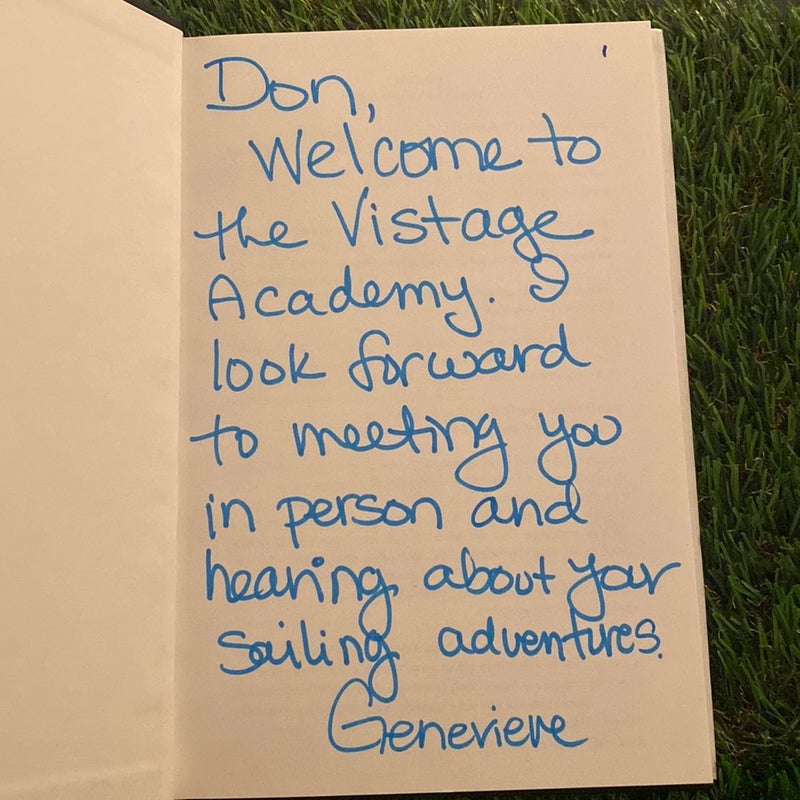 Don,
Welcome to
the Vistage
Academy. I
look forward
to meeting you
in person and
hearing about your
sailing adventures.
Genevieve